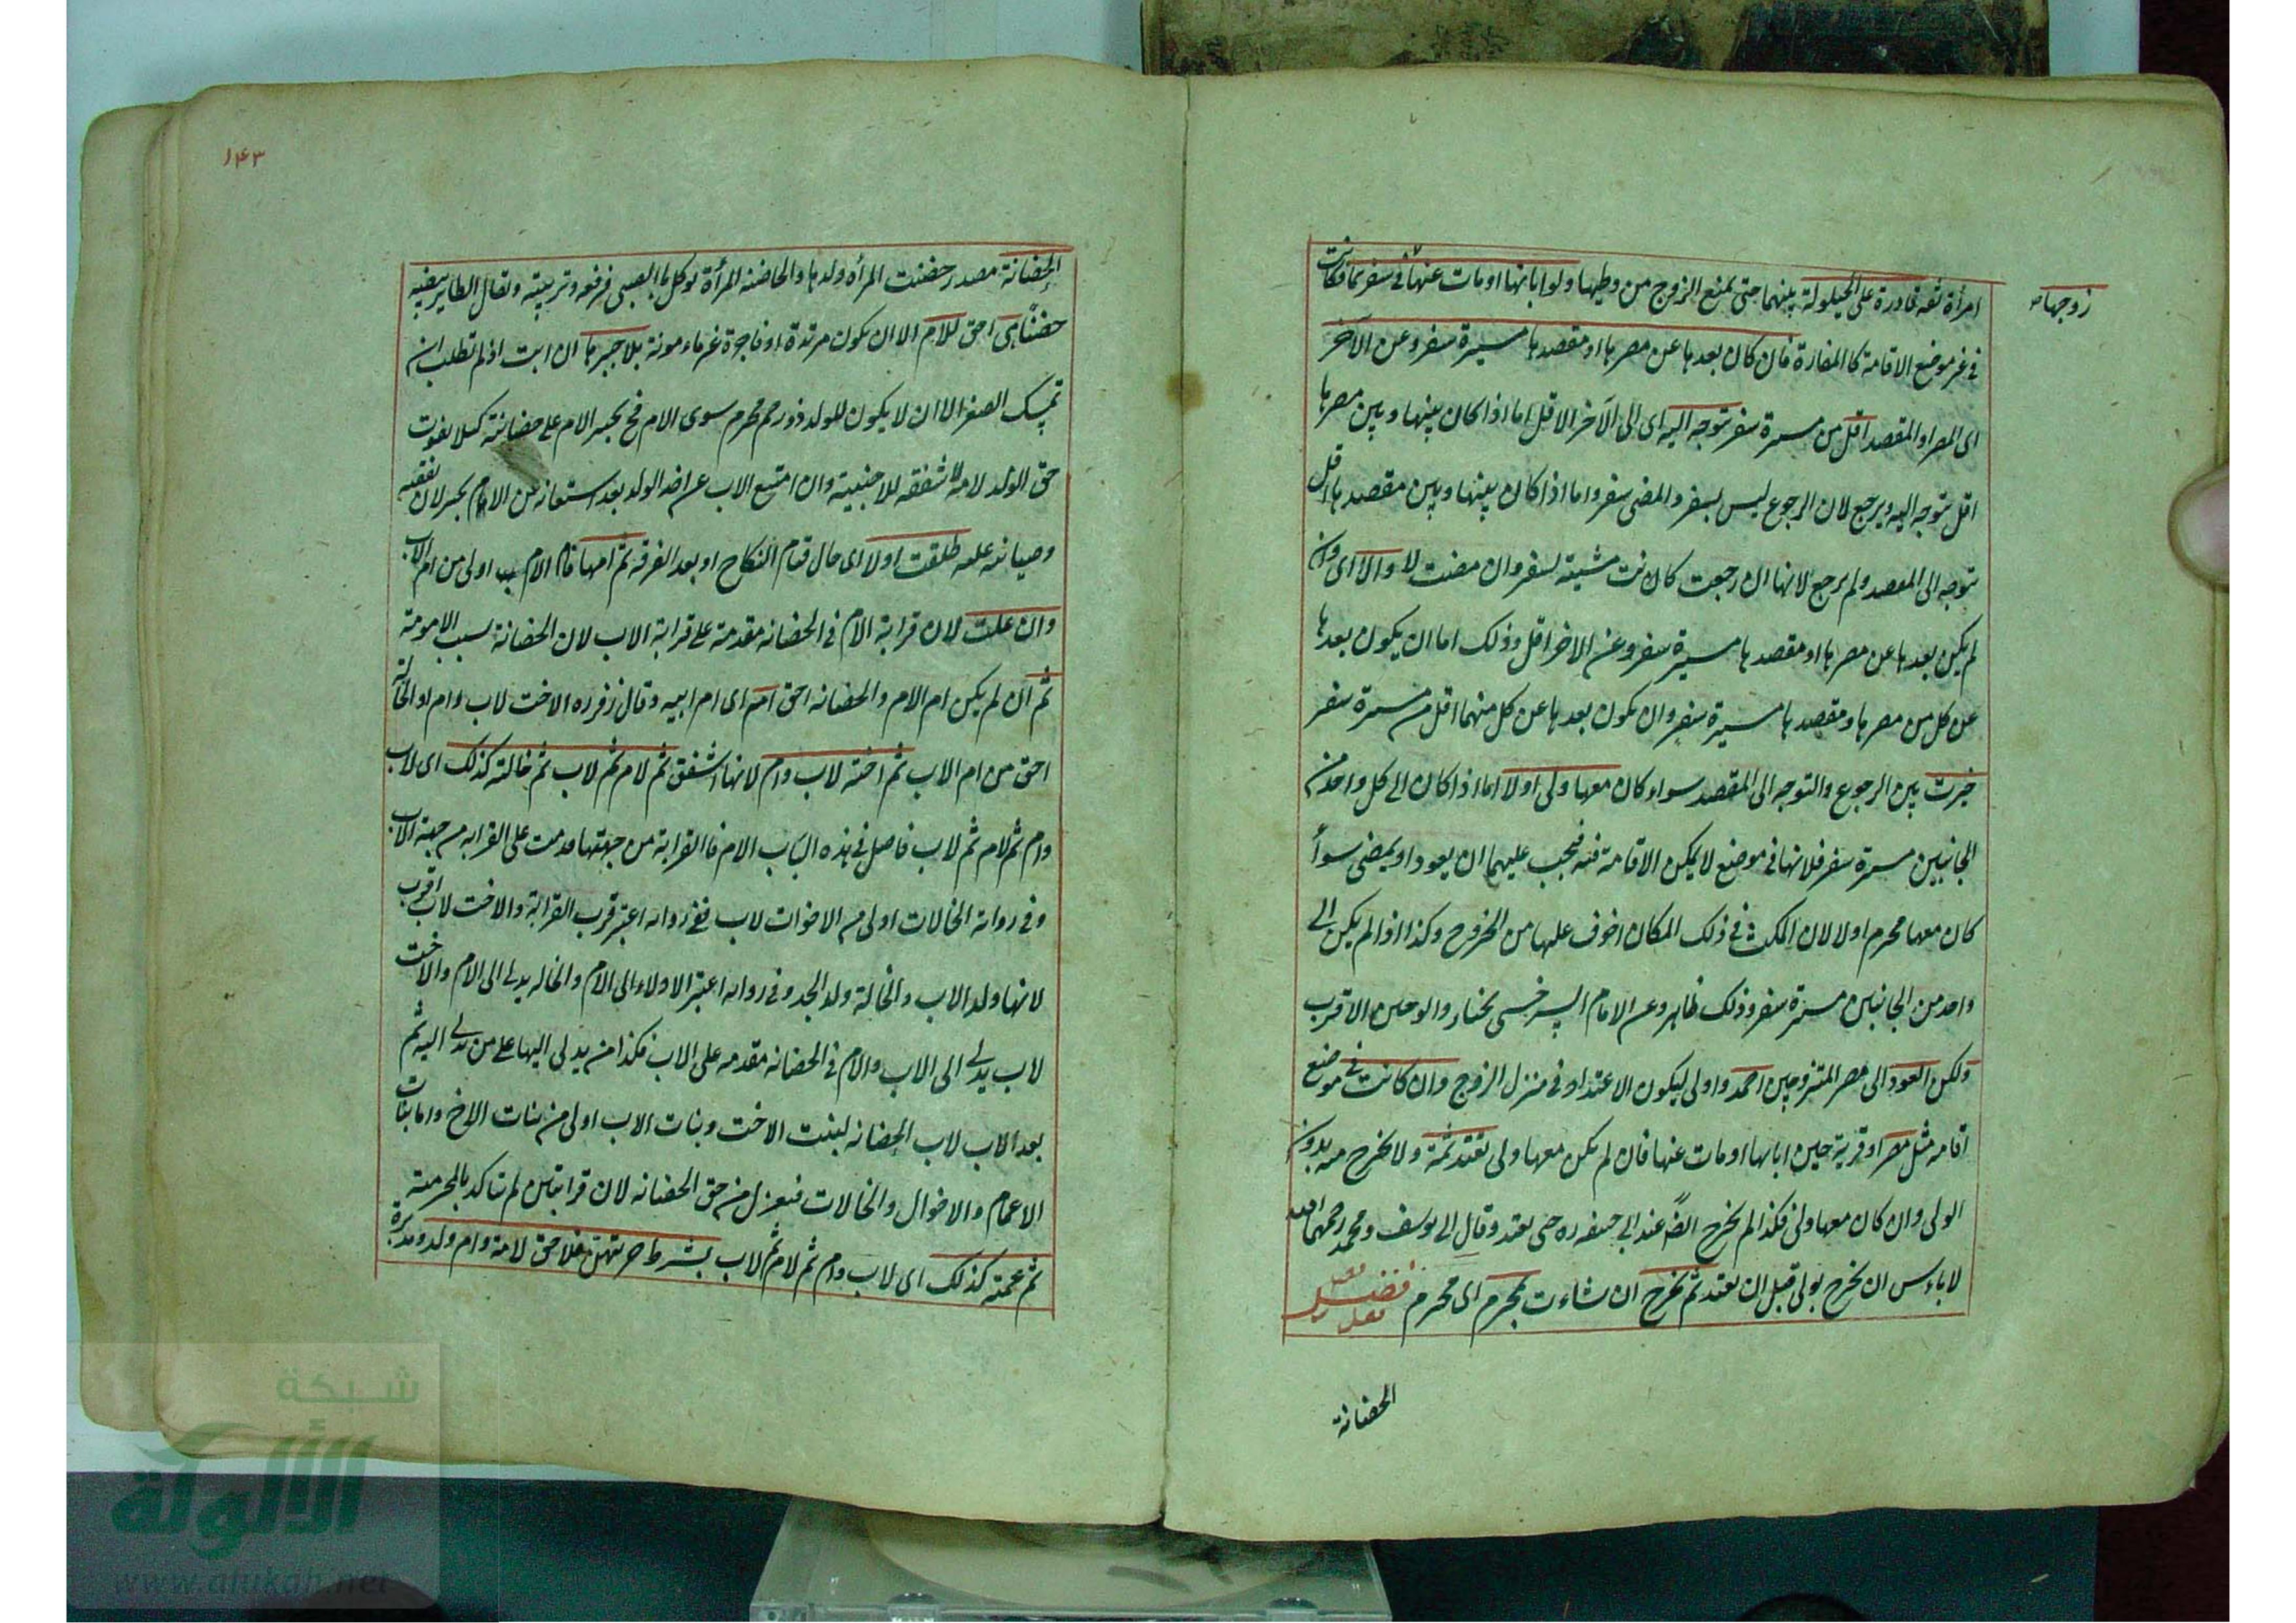 امرأة ثقة قادرة على الحيلولة بينهما حتى يمنع الزوج من وطيها ولو ابانها او مات عنها في سفر بما فكانت
زوجها
في غير موضع الاقامة كالمفازة فان كان بعدها عن مصرها او مقصدها مسيرة سفر وعن الآخر
اى المصر او المقصد اقل من مسيرة سفر توجه اليه اى الى الآخر الاقل اما اذا كان بينها وبين مصرها
اقل توجه اليه ويرجع لان الرجوع ليس بسفر والمضى سفر واما اذا كان بينها وبين مقصدها اقل
توجه الى المقصد ولم يرجع لانها ان رجعت كانت مشيته لسفر وان مضت لا والا اى وان
لم يكن بعدها عن مصرها او مقصدها مسيرة سفر وعن الاخر اقل وذلك اما ان يكون بعدها
عن كل من مصرها ومقصدها مسيرة سفر وان يكون بعدها عن كل منهما اقل من مسيرة سفر
خيرت بين الرجوع والتوجه الى المقصد سواء كان معها ولى او لا اما اذا كان الى كل واحد من
الجانبين مسيرة سفر فلانها في موضع لا يمكن الاقامة فيه فيجب عليهما ان يعود او يمضى سواء
كان معها محرم او لا لان المكث في ذلك المكان اخوف عليها من الخروج وكذا اذا لم يكن الى
واحد من الجانبين مسيرة سفر وذلك ظاهر وعن الامام السرخسى يختار والوحين الاقرب
ولكن العود الى مصر المتزوجين احمد واولى ليكون الاعتداد في منزل الزوج وان كانت في موضع
اقامه مثل مصر او قرية حين ابانها او مات عنها فان لم يكن معها ولى تعتد ثمة ولا تخرج منه بدون
الولى وان كان معها ولى فكذا لم تخرج ايضا عند ابى حنيفه ره حتى تعتد وقال ابى يوسف ومحمد رحمهما الله
لا باءس ان تخرج بولى قبل ان تعتد ثم تخرج ان شاءت بمحرم اى محرم فصل
الحضانة
١٤٣
الحضانة مصدر حضنت المرأه ولدها والحاضنة المرأة توكل بالصبى فرفعه وتربيته وتقال الطاير بيضه
حضنا هى احق للام الا ان يكون مرتدة او فاجرة غير مامونة بلا جبرها ان ابت اذ لم تطلب ان
تمسك الصغير الا ان لا يكون للولد ذو رحم محرم سوى الام فح يجبر الام على حضانته كيلا يفوت
حق الولد لامه لا شفقه للاجنبية وان امتنع الاب عن اخذ الولد بعد استغنائه عن الام يجبر لان نفقته
وصيانته عليه طلقت او لا اى حال قيام النكاح او بعد الفرقة ثم امها فام الام اولى من ام الاب
وان علت لان قرابة الام في الحضانه مقدمة على قرابة الاب لان الحضانة بسبب الامومة
ثم ان لم يكن ام الام والحضانه احق امه اى ام ابيه وقال زفر ره الاخت لاب وام او الخالة
احق من ام الاب ثم اخته لاب وام لانها اشفق ثم لام ثم لاب ثم خالته كذلك اى لاب
وام ثم لام ثم لاب فاصل في هذه الباب الام فالقرابة من جهتها قدمت على القرابه من جهة الاب
وفي روايه الخالات اولى من الاخوات لاب ففى روايه اعتبر قرب القرابة والاخت لاب اقرب
لانها ولد الاب والخالة ولد الجد وفي روايه اعتبر الادلاء الى الام والخاله يدلى الى الام والاخت
لاب يدلى الى الاب والام في الحضانه مقدمه على الاب فكذا من يدلى اليها على من يدلى اليه ثم
بعد الاب لاب الحضانه لبنت الاخت وبنات الاب اولى من بنات الاخ واما بنات
الاعمام والاخوال والخالات فبمعزل من حق الحضانه لان قرابتين لم تتاكد بالمحرمية
ثم عمته كذلك اى لاب وام ثم لام ثم لاب بشرط حريتهن فلا حق لامة وام ولد ومدبرة
شبكة
الألوكة
www.alukah.net